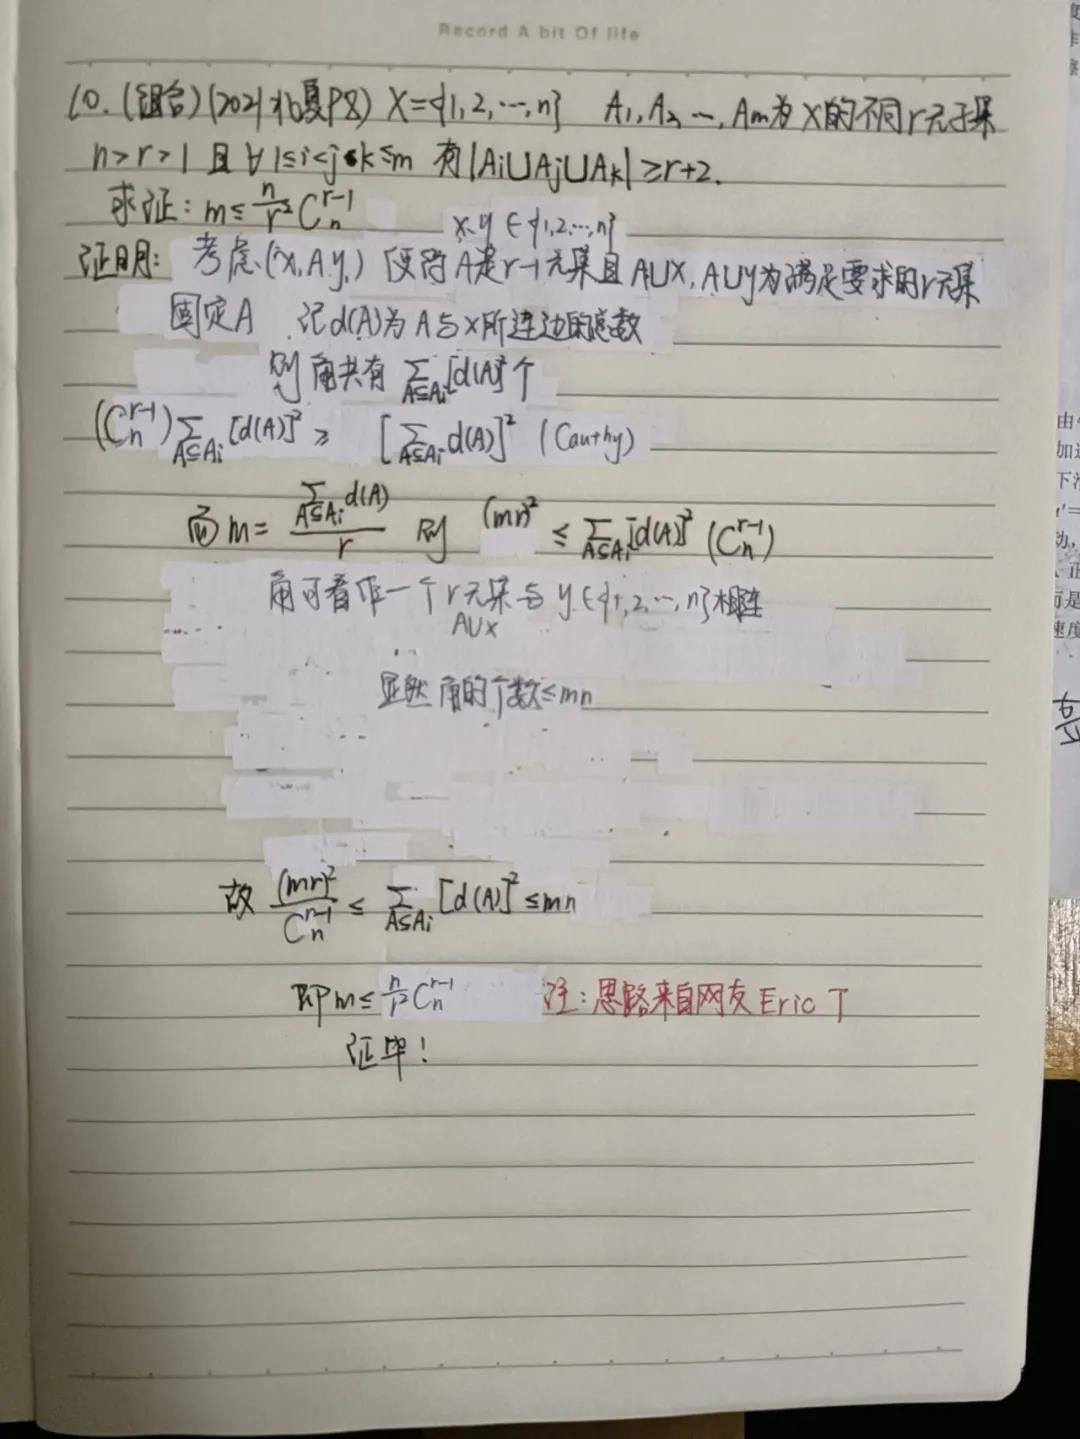 Record A bit Of life
10.(组合)(2021北大夏P8) X={1,2,…,n} A₁,A₂,…,Aₘ为X的不同r元子集
n>r>1 且 ∀1≤i<j<k≤m 有|Ai∪Aj∪Ak|≥r+2.
求证: m≤n/r² Cₙ^(r-1)
x,y∈{1,2…,n}
证明: 考虑(x,A,y) 使得A是r-1元集且A∪x,A∪y为满足要求的r元集
固定A 记d(A)为A与x所连边的总数
则角共有 Σ_(A⊆Ai)[d(A)]²个
(Cₙ^(r-1))Σ_(A⊆Ai)[d(A)]² ≥ [Σ_(A⊆Ai)d(A)]² (Cauthy)
而m= Σ_(A⊆Ai)d(A)/r 则 (mr)² ≤ Σ_(A⊆Ai)[d(A)]² (Cₙ^(r-1))
角可看作一个r元集与y∈{1,2,…,n}相连
A∪x
显然角的个数≤mn
故 (mr)²/Cₙ^(r-1) ≤ Σ_(A⊆Ai)[d(A)]² ≤mn
即m≤n/r² Cₙ^(r-1) 注:思路来自网友Eric T
证毕!